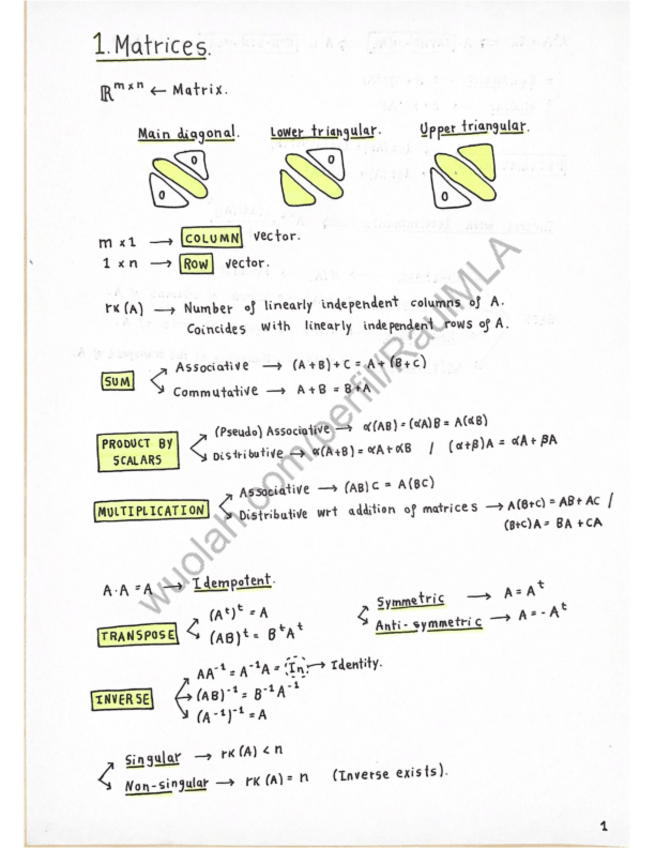 1. Matrices.
ℝᵐˣⁿ ← Matrix.
Main diagonal. Lower triangular. Upper triangular.
0 0 0
0 0
m x 1 → COLUMN vector.
1 x n → ROW vector.
rk(A) → Number of linearly independent columns of A.
Coincides with linearly independent rows of A.
SUM
Associative → (A+B)+C = A+(B+C)
Commutative → A+B = B+A
PRODUCT BY SCALARS
(Pseudo) Associative → α(AB) = (αA)B = A(αB)
Distributive → α(A+B) = αA+αB / (α+β)A = αA+βA
MULTIPLICATION
Associative → (AB)C = A(BC)
Distributive wrt addition of matrices → A(B+C) = AB+AC /
(B+C)A = BA+CA
A·A = A → Idempotent.
TRANSPOSE
(Aᵗ)ᵗ = A
(AB)ᵗ = BᵗAᵗ
Symmetric → A = Aᵗ
Anti-symmetric → A = -Aᵗ
INVERSE
AA⁻¹ = A⁻¹A = In → Identity.
(AB)⁻¹ = B⁻¹A⁻¹
(A⁻¹)⁻¹ = A
Singular → rk(A) < n
Non-singular → rk(A) = n (Inverse exists).
1
wuolah.com/perfil/RaulMLA